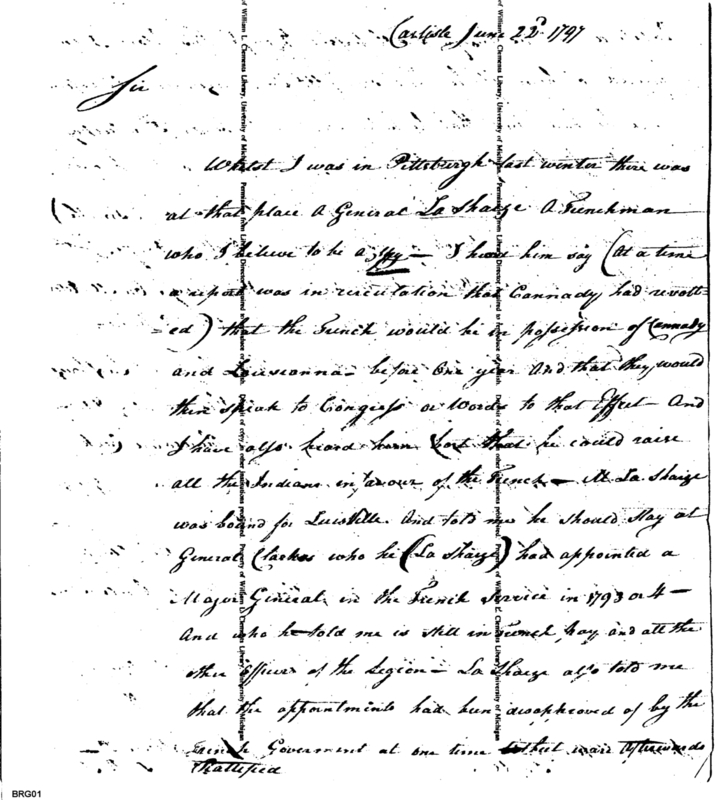 Carlisle June 22d 1797
Sir
Whilst I was in Pittsburgh last winter there was
at that place A General La Shaize A Frenchman
who I believe to be a spy — I heard him say (At a time
a report was in circulation that Cannady had revolt-
ed) that the French would be in possession of Cannady
and Louisianna before One year And that they would
then speak to Congress or Words to that Effect — And
I have also heard him bost that he could raise
all the Indians in favour of the French — M La Shaize
was bound for Luisville And told me he should stay at
General Clarkes who he (La Shaize) had appointed a
Major General in the French Service in 1793 or 4 —
And who he told me is still in French pay and all the
other Officers of the Legion — La Shaize also told me
that the appointments had been disapproved of by the
French Goverment at one time but were Afterwards
Rattefied
of William L. Clements Library, University of Michigan
Property of William L. Clements Library, University of Michigan
BRG01